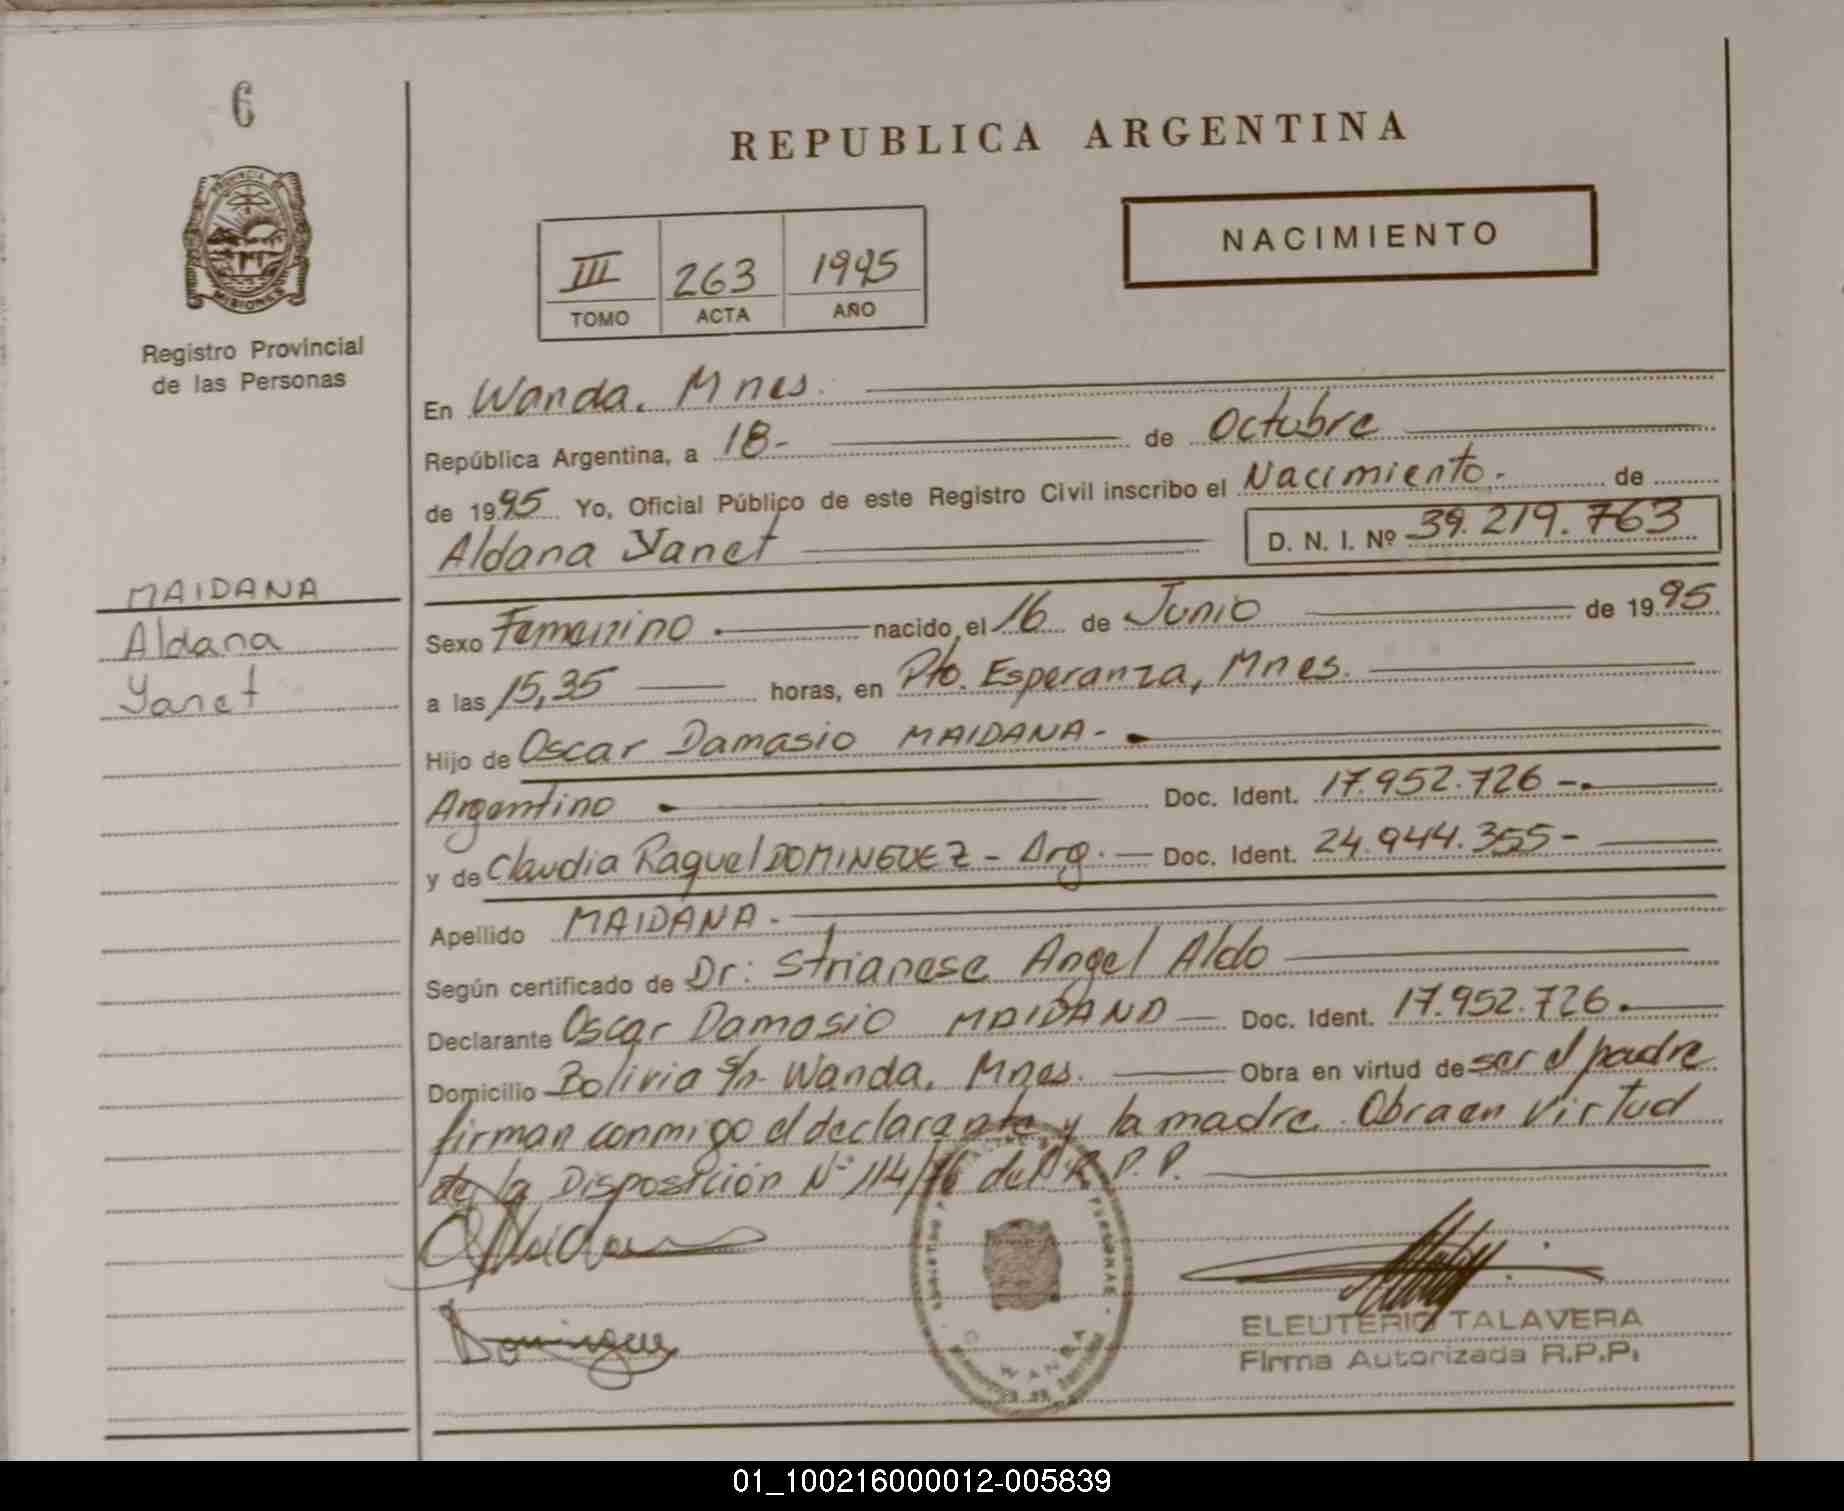 6
PROVINCIA DE
MISIONES
Registro Provincial
de las Personas
MAIDANA
Aldana
Yanet
REPUBLICA ARGENTINA
NACIMIENTO
III 263 1995
TOMO ACTA AÑO
En Wanda, Mnes.
República Argentina, a 18- de Octubre
de 1995 Yo, Oficial Público de este Registro Civil inscribo el Nacimiento. de
Aldana Yanet D. N. I. Nº 39.219.763
Sexo Femenino nacido el 16 de Junio de 1995
a las 15,35 horas, en Pto. Esperanza, Mnes.
Hijo de Oscar Damasio MAIDANA-
Argentino Doc. Ident. 17.952.726-
y de Claudia Raquel DOMINGUEZ - Arg. Doc. Ident. 24.944.355-
Apellido MAIDANA.
Según certificado de Dr: Strianese Angel Aldo
Declarante Oscar Damasio MAIDANA Doc. Ident. 17.952.726.
Domicilio Bolivia s/n. Wanda, Mnes. Obra en virtud de ser el padre
firman conmigo el declarante y la madre. Obra en virtud
de la Disposición Nº 114/76 del R.P.P.
Dominguez
WANDA
ELEUTERIO TALAVERA
Firma Autorizada R.P.P.
01_100216000012-005839